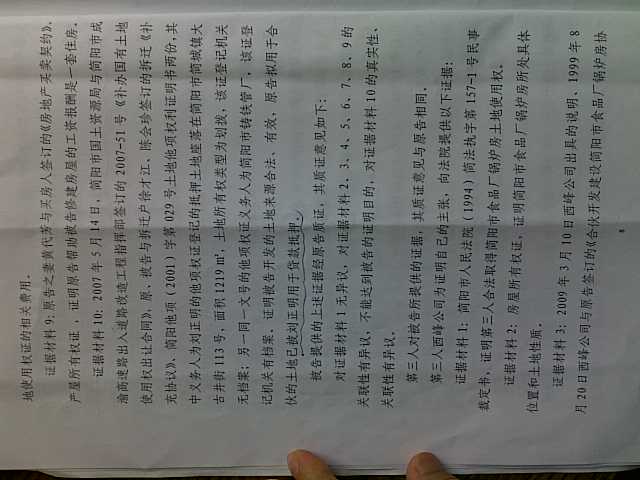 地使用权证的相关费用。
证据材料 9：原告之妻黄代芳与买房人签订的《房地产买卖契约》、
产屋所有权证，证明原告帮助被告修建房屋的工资报酬是一套住房。
证据材料 10：2007 年 5 月 14 日，简阳市国土资源局与简阳市成
渝高速路出入道路改造工程指挥部签订的 2007-51 号《补办国有土地
使用权出让合同》、原、被告与拆迁户徐才江、陈会珍签订的拆迁《补
充协议》、简阳他项（2001）字第 029 号土地他项权利证明书两份，其
中义务人为刘正明的他项权证登记的抵押土地座落在简阳市简城镇大
古井街 113 号，面积 1219 ㎡，土地所有权类型为划拨，该证登记机关
无档案；另一同一文号的他项权证义务人为简阳市铸铁管厂，该证登
记机关有档案。证明被告开发的土地来源合法、有效，原告拟用于合
伙的土地已被刘正明用于贷款抵押。
被告提供的上述证据经原告质证，其质证意见如下：
对证据材料 1 无异议，对证据材料 2、3、4、5、6、7、8、9 的
关联性有异议，不能达到被告的证明目的，对证据材料 10 的真实性、
关联性有异议。
第三人对被告所提供的证据，其质证意见与原告相同。
第三人西峰公司为证明自己的主张，向法院提供以下证据：
证据材料 1：简阳市人民法院（1994）简法执字第 157-1 号民事
裁定书，证明第三人合法取得简阳市食品厂锅炉房土地使用权。
证据材料 2：房屋所有权证，证明简阳市食品厂锅炉房所处具体
位置和土地性质。
证据材料 3：2009 年 3 月 10 日西峰公司出具的说明、1999 年 8
月 20 日西峰公司与原告签订的《合伙开发建设简阳市食品厂锅炉房协
8